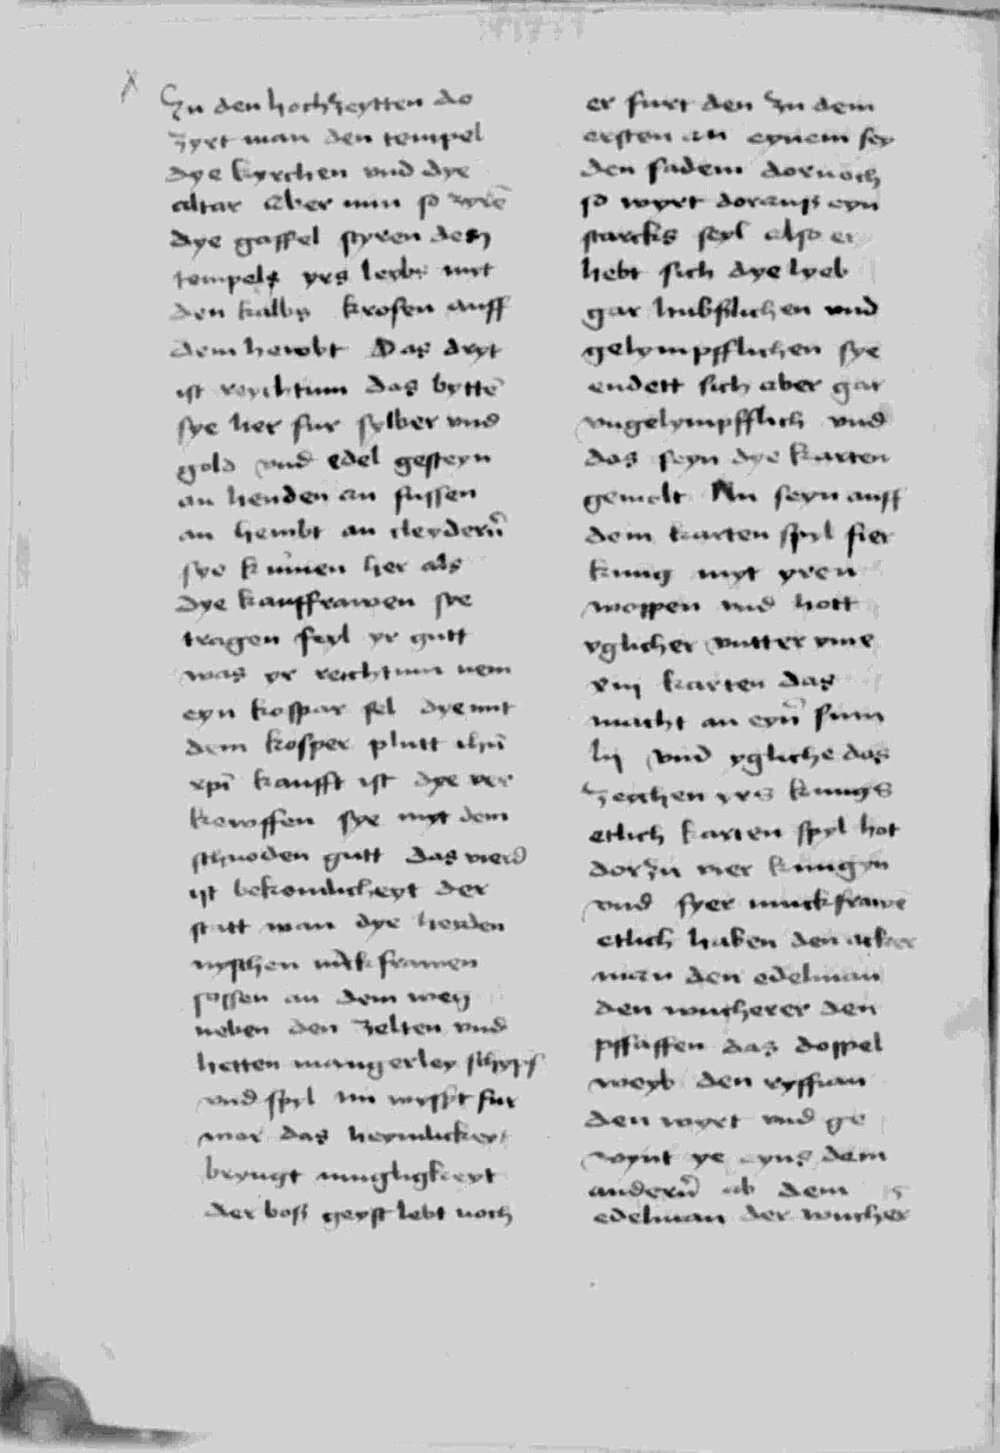 Zu den hochzeytten do
zyrt man den tempel
dye kyrchen vnd dye
altar aber nun so zyrē
dye gaffel styren deß
tempels yrs leybs myt
den kalbs krosen auff
dem hewbt Das dryt
ist reychtum das byttē
sye her fur sylber vnd
gold vnd edel gesteyn
an henden an fussen
an hewbt an cleydern̄
sye kumen her als
dye kauffrawen sye
tragen feyl yr gutt
was yr reichtum nem
eyn kospar sel dye mit
dem kosper plutt ihū
xpī kaufft ist dye ver
kowffen sye myt dem
schnoden gutt das vierd
ist bekomlicheyt der
statt wan dye heyden
nyschen frawen
sossen an dem weg
neben den zelten vnd
hetten mangerley
vnd spyl nu wysst fur
war das heymlickeyt
bryngt mugligkeyt
der boß geyst lebt noch
er furt den zu dem
ersten an eynem sey
den fadem dornoch
so wyrt dorauß eyn
starcks seyl also er
hebt sich dye lyeb
gar hubslichen vnd
gelympfflichen sye
endett sich aber gar
vngelympfflich vnd
das seyn dye karten
gemolt Nu seyn auff
dem karten spyl fier
kunig myt yren
woppen vnd hott
yglicher vntter yme
xiij karten das
macht an eyn̄ sum
lij vnd ygliche das
zeichen yrs kunigs
etlich karten spyl hot
dorzu vier kunigyn
vnd fyer junckfrawē
etlich haben den acker
man den edelman
den wucherer den
pfaffen das doppel
weyb den ryffian
den wyrt vnd ge
wynt ye eyns dem
andern̄ ab dem
edelman der wucher